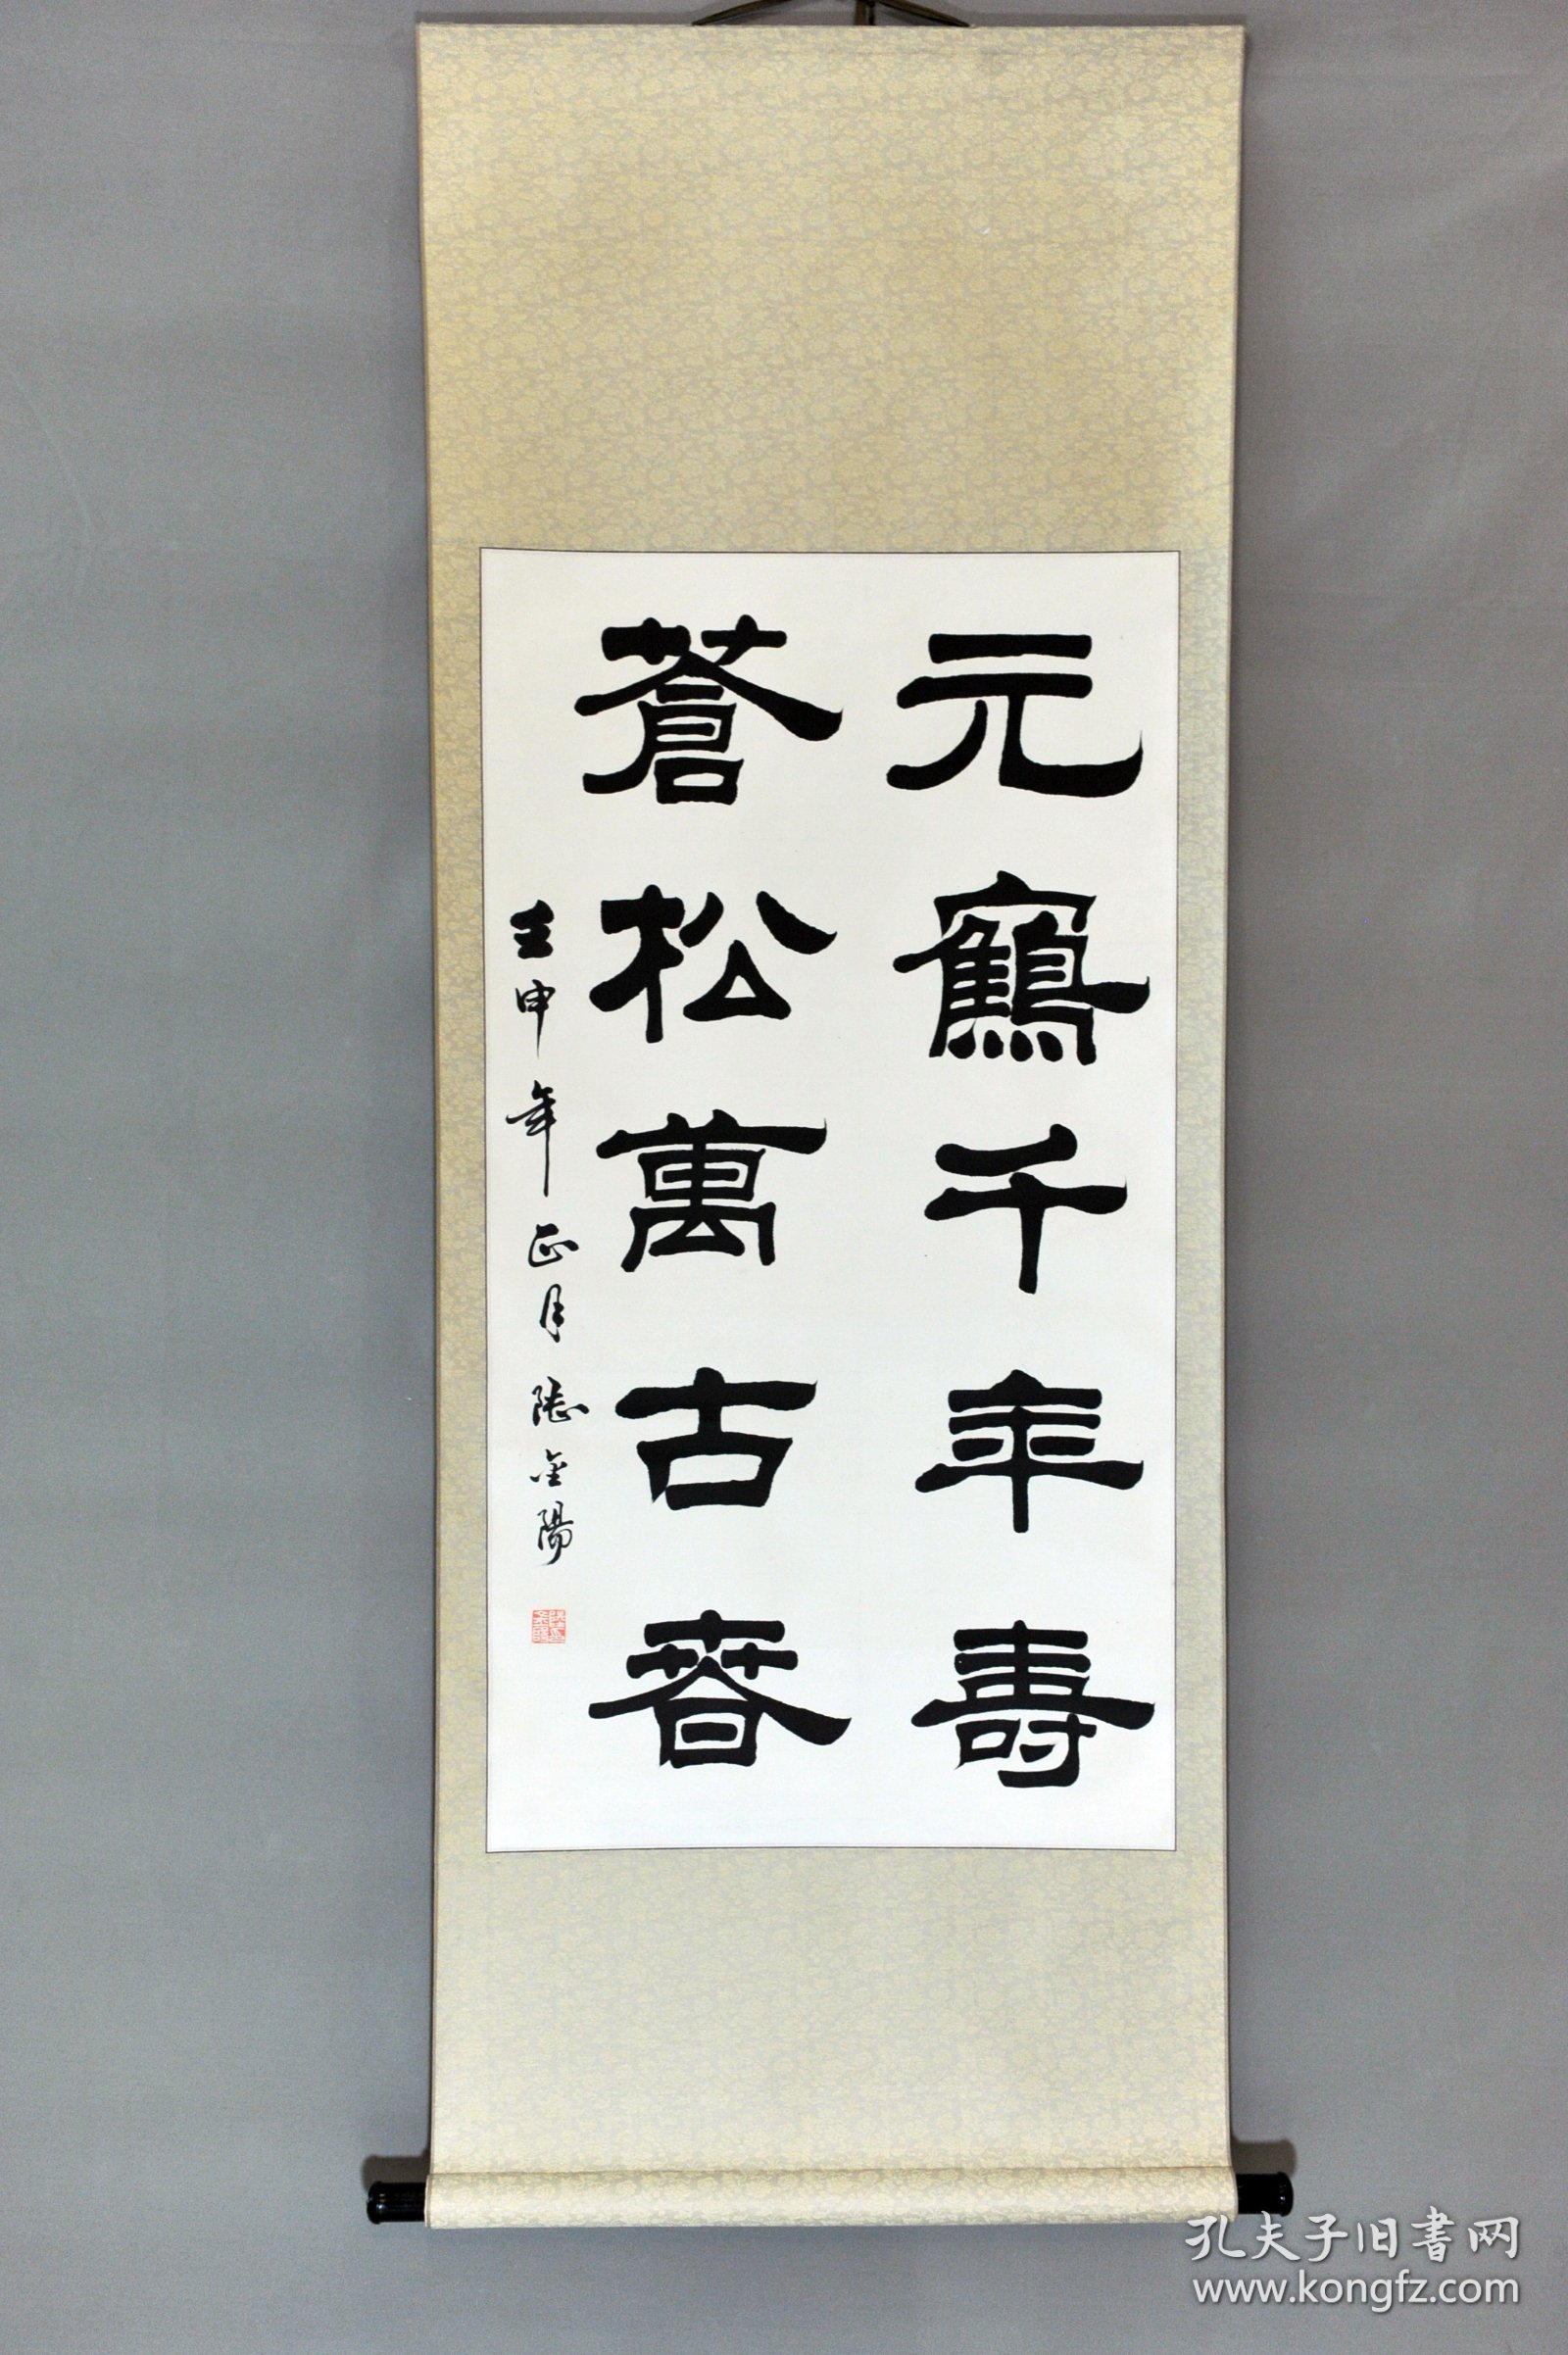 元鶴千年壽
蒼松萬古春
壬申年正月陸金陽
孔夫子旧书网
www.kongfz.com